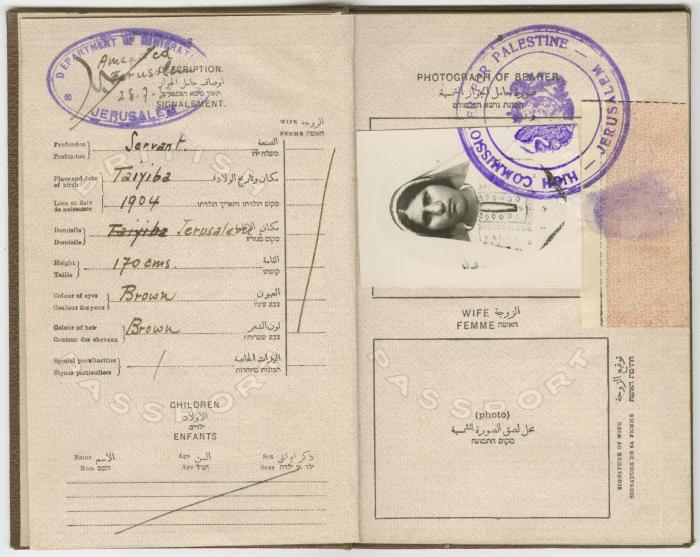 DEPARTMENT OF IMMIGRATION
Amended
Jerusalem
28.7.
JERUSALEM
DESCRIPTION.
اوصاف حامل الجواز
SIGNALEMENT.
WIFE الزوجة
FEMME האשה
Profession Servant الصنعة
Profession משלח ידו
Place and date of birth Taiyiba مكان وتاريخ الولادة
Lieu et date de naissance 1904 מקום הולדתו ותאריך הולדתו
Domicile Taiyiba Jerusalem مكان
Domicile מקום מגוריו
Height 170 cms. القامة
Taille קומתו
Colour of eyes Brown العيون
Couleur des yeux צבע עיניו
Colour of hair Brown لون الشعر
Couleur des cheveux צבע שערותיו
Special peculiarities المميزات الخاصة
Signes particuliers סימנים מיוחדים
PASSPORT
CHILDREN
الأولاد
ילדים
ENFANTS
Name الاسم Age السن Sex ذكر ام انثى
Nom השם Age הגיל Sexe ילד או ילדה
HIGH COMMISSIONER FOR PALESTINE — JERUSALEM
PHOTOGRAPH OF BEARER
صورة حامل الجواز الشمسية
תמונת נושא הפספורט
WIFE الزوجة
FEMME האשה
PASSPORT
(photo)
محل لصق الصورة الشمسية
מקום התמונה
توقيع الزوجة
חתימת האשה
SIGNATURE OF WIFE
SIGNATURE DE SA FEMME